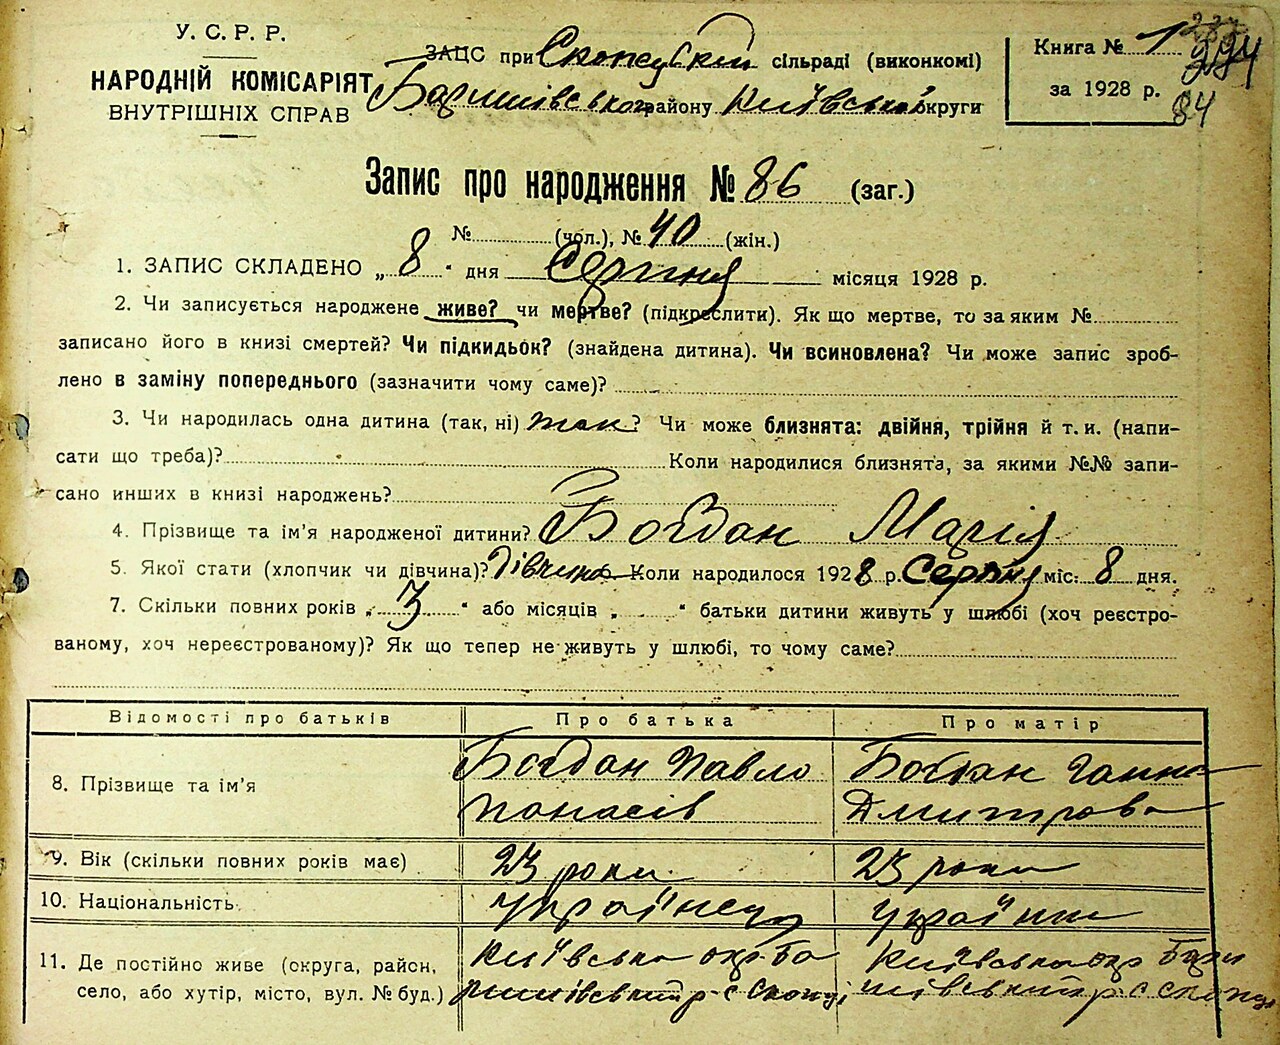 У. С. Р. Р.
НАРОДНІЙ КОМІСАРІЯТ
ВНУТРІШНІХ СПРАВ
ЗАЦС при Скопецькій сільраді (виконкомі)
Баришівського району Київської округи
Книга № 1
за 1928 р.
84
Запис про народження № 86 (заг.)
№ (чол.), № 40 (жін.)
1. ЗАПИС СКЛАДЕНО „ 8 “ дня Серпня місяця 1928 р.
2. Чи записується народжене живе? чи мертве? (підкреслити). Як що мертве, то за яким №
записано його в книзі смертей? Чи підкидьок? (знайдена дитина). Чи всиновлена? Чи може запис зроб-
лено в заміну попереднього (зазначити чому саме)?
3. Чи народилась одна дитина (так, ні) так? Чи може близнята: двійня, трійня й т. и. (напи-
сати що треба)? Коли народилися близнята, за якими №№ запи-
сано инших в книзі народжень?
4. Прізвище та ім’я народженої дитини? Богдан Марія
5. Якої стати (хлопчик чи дівчина)? Дівчина Коли народилося 1928 р. Серпня міс. 8 дня.
7. Скільки повних років „ 3 “ або місяців „ “ батьки дитини живуть у шлюбі (хоч реєстро-
ваному, хоч нереєстрованому)? Як що тепер не живуть у шлюбі, то чому саме?
Відомості про батьків Про батька Про матір
8. Прізвище та ім’я Богдан Павло Панасів Богдан Ганна Дмитрова
9. Вік (скільки повних років має) 23 роки 23 роки
10. Національність українець українка
11. Де постійно живе (округа, район, Київська окр. Ба Київська окр Бари
село, або хутір, місто, вул. № буд.) ришівський р с Скопці шівський р с Скопці